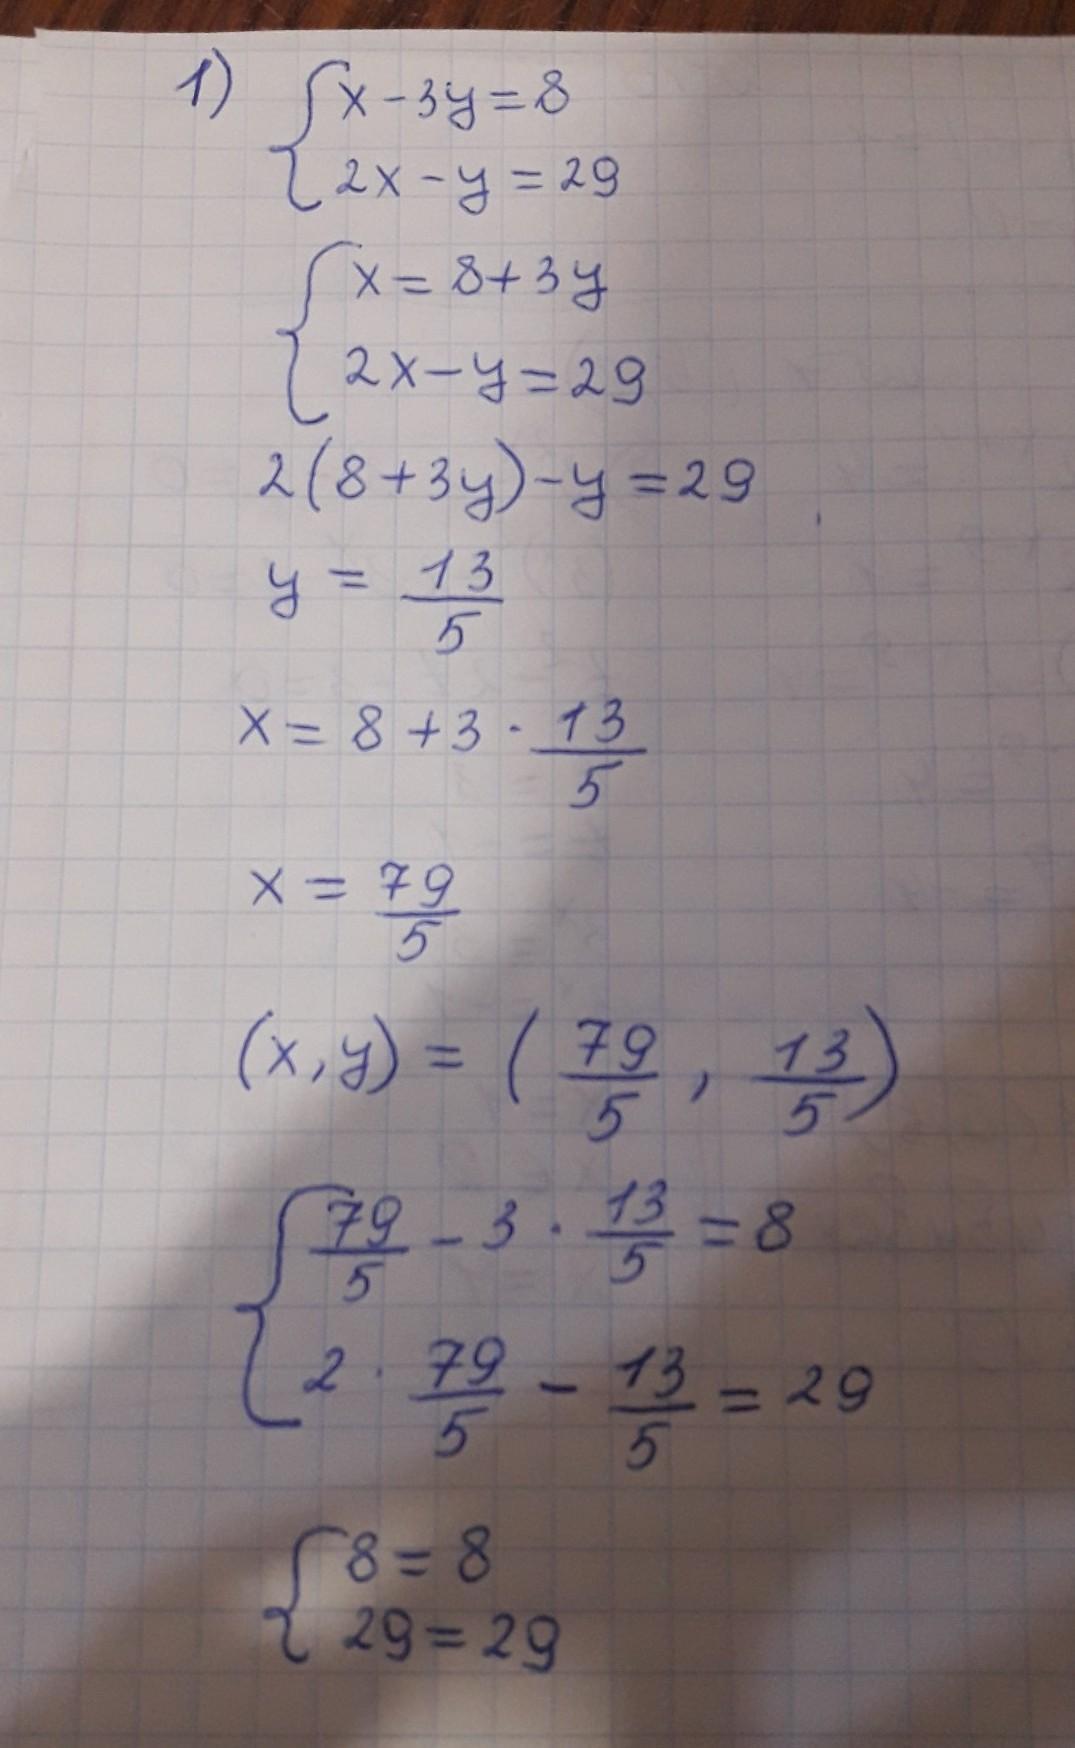 1) { x - 3y = 8
2x - y = 29
{ x = 8 + 3y
2x - y = 29
2(8 + 3y) - y = 29
y = 13/5
x = 8 + 3 · 13/5
x = 79/5
(x, y) = (79/5, 13/5)
{ 79/5 - 3 · 13/5 = 8
2 · 79/5 - 13/5 = 29
{ 8 = 8
29 = 29